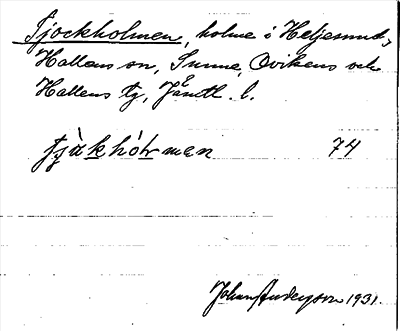 Tjockholmen, holme i Heljesund,
Hallens sn, Sunne, Ovikens och
Hallens tg, Jämtl. l.
tjåkhórmen 74
Johan Anderson 1931.